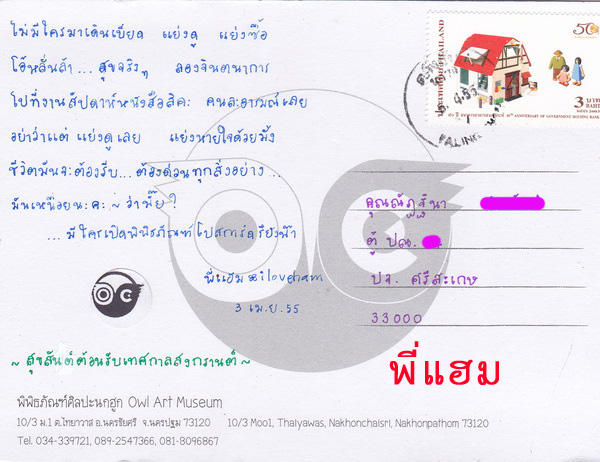 ไม่มีใครมาเดินเบียด แย่งดู แย่งซื้อ
โอ้หลั่นล้า... สุขจริงๆ ลองจินตนาการ
ไปที่งานสัปดาห์หนังสือสิคะ คนละอารมณ์เลย
อย่าว่าแต่ แย่งดูเลย แย่งหายใจด้วยมั้ง
ชีวิตมันจะต้องรีบ... ต้องด่วนทุกสิ่งอย่าง...
มันเหนื่อยนะคะ ~ ว่ามั๊ย?
...มีใครเปิดพิพิธภัณฑ์โปสการ์ดรึยังน๊า
พี่แฮม iloveham
3 เม.ย. 55
~ สุขสันต์ต้อนรับเทศกาลสงกรานต์ ~
ประเทศไทย THAILAND
50
3 บาท
BAHT
คุณณัฏฐินา
ตู้ ปณ.
ปจ. ศรีสะเกษ
33000
พี่แฮม
พิพิธภัณฑ์ศิลปะนกฮูก Owl Art Museum
10/3 ม.1 ต.ไทยาวาส อ.นครชัยศรี จ.นครปฐม 73120 10/3 Moo1, Thaiyawas, Nakhonchaisri, Nakhonpathom 73120
Tel. 034-339721, 089-2547366, 081-8096867